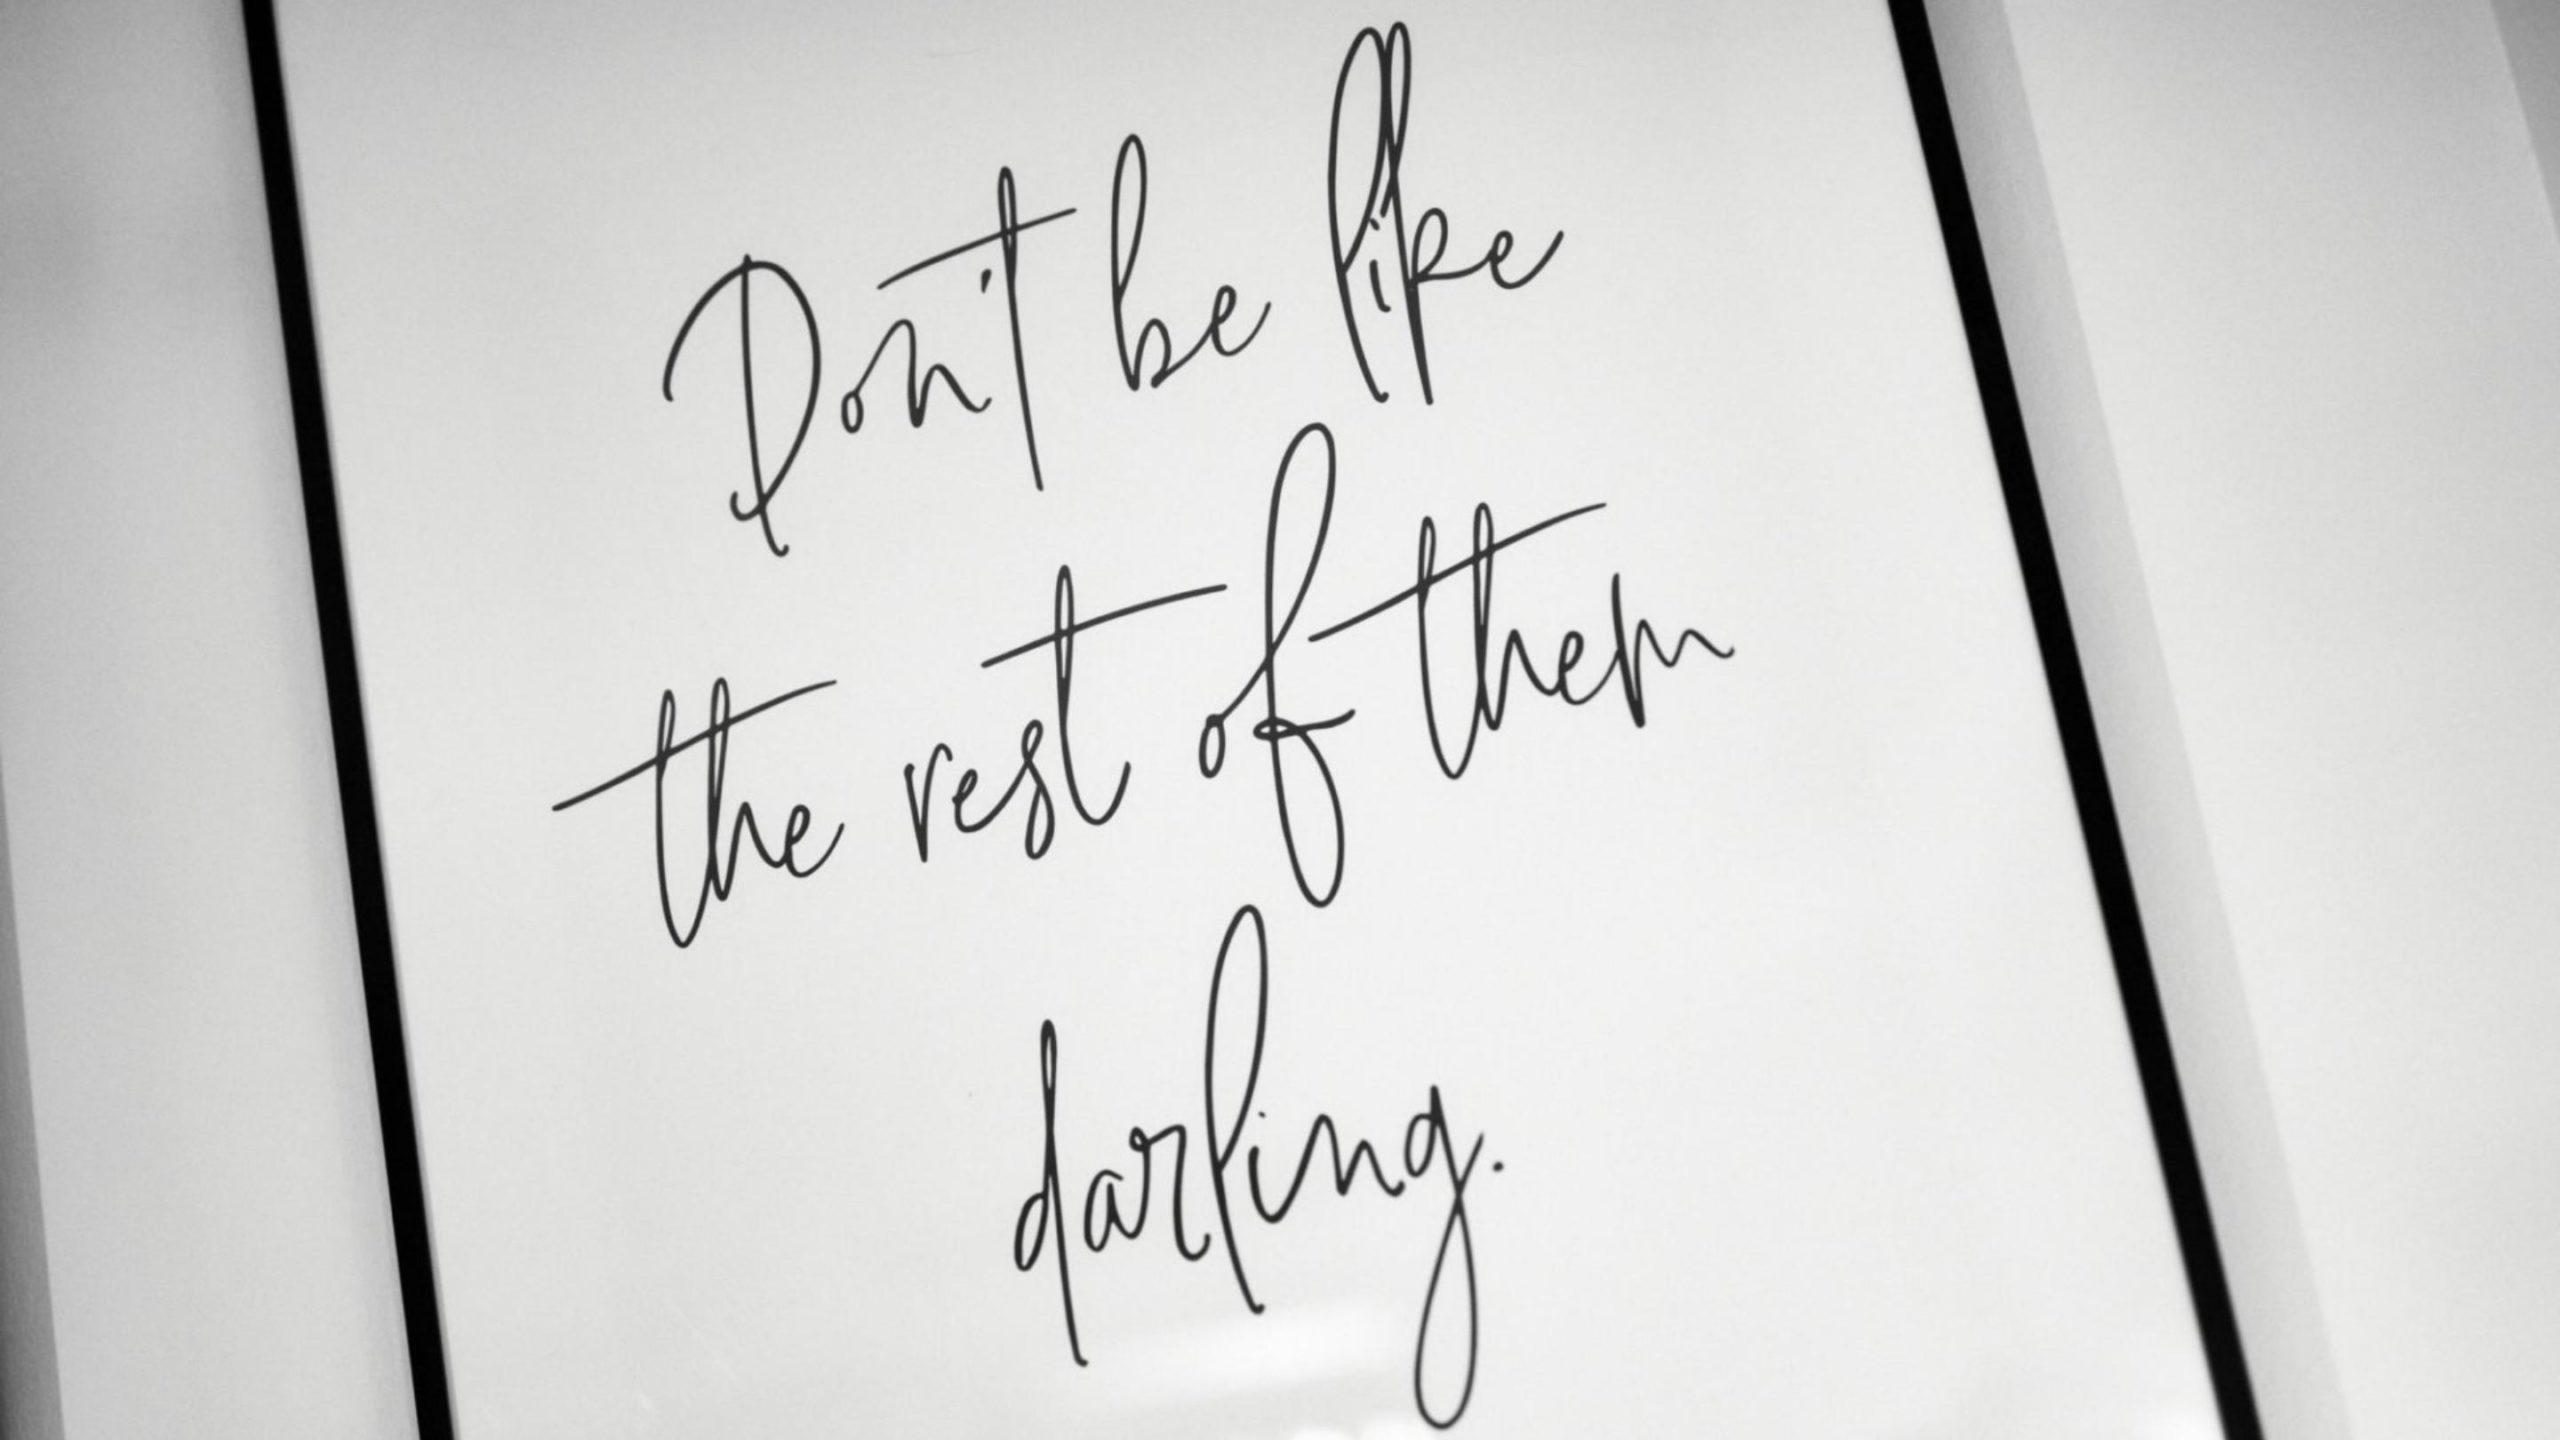 Don't be like
the rest of them
darling.